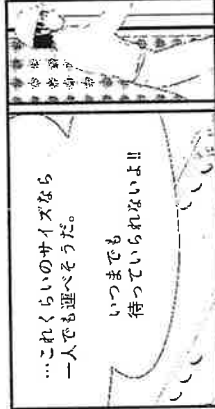 …これくらいのサイズなら
一人でも運べそうだ。
いつまでも
待っていられないよ!!